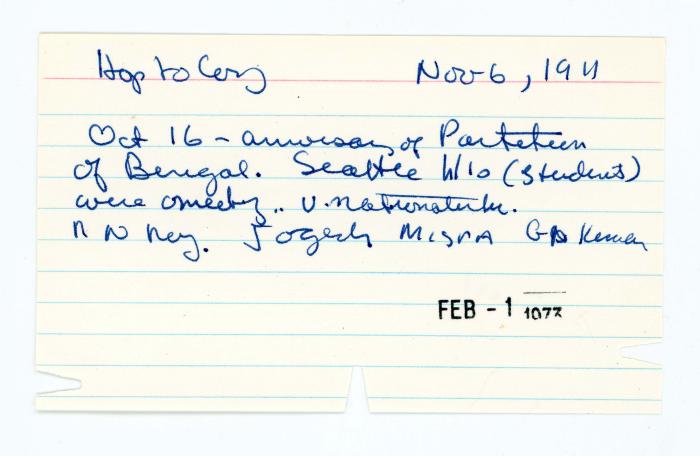 Hop to Cory Nov 6, 1911
Oct 16 - aniversary of Partition
of Bengal. Seattle H10 (students)
were a meeting .. v. nationalistic.
R N Roy. Jogesh MISRA G D Kumar
FEB - 1 1973